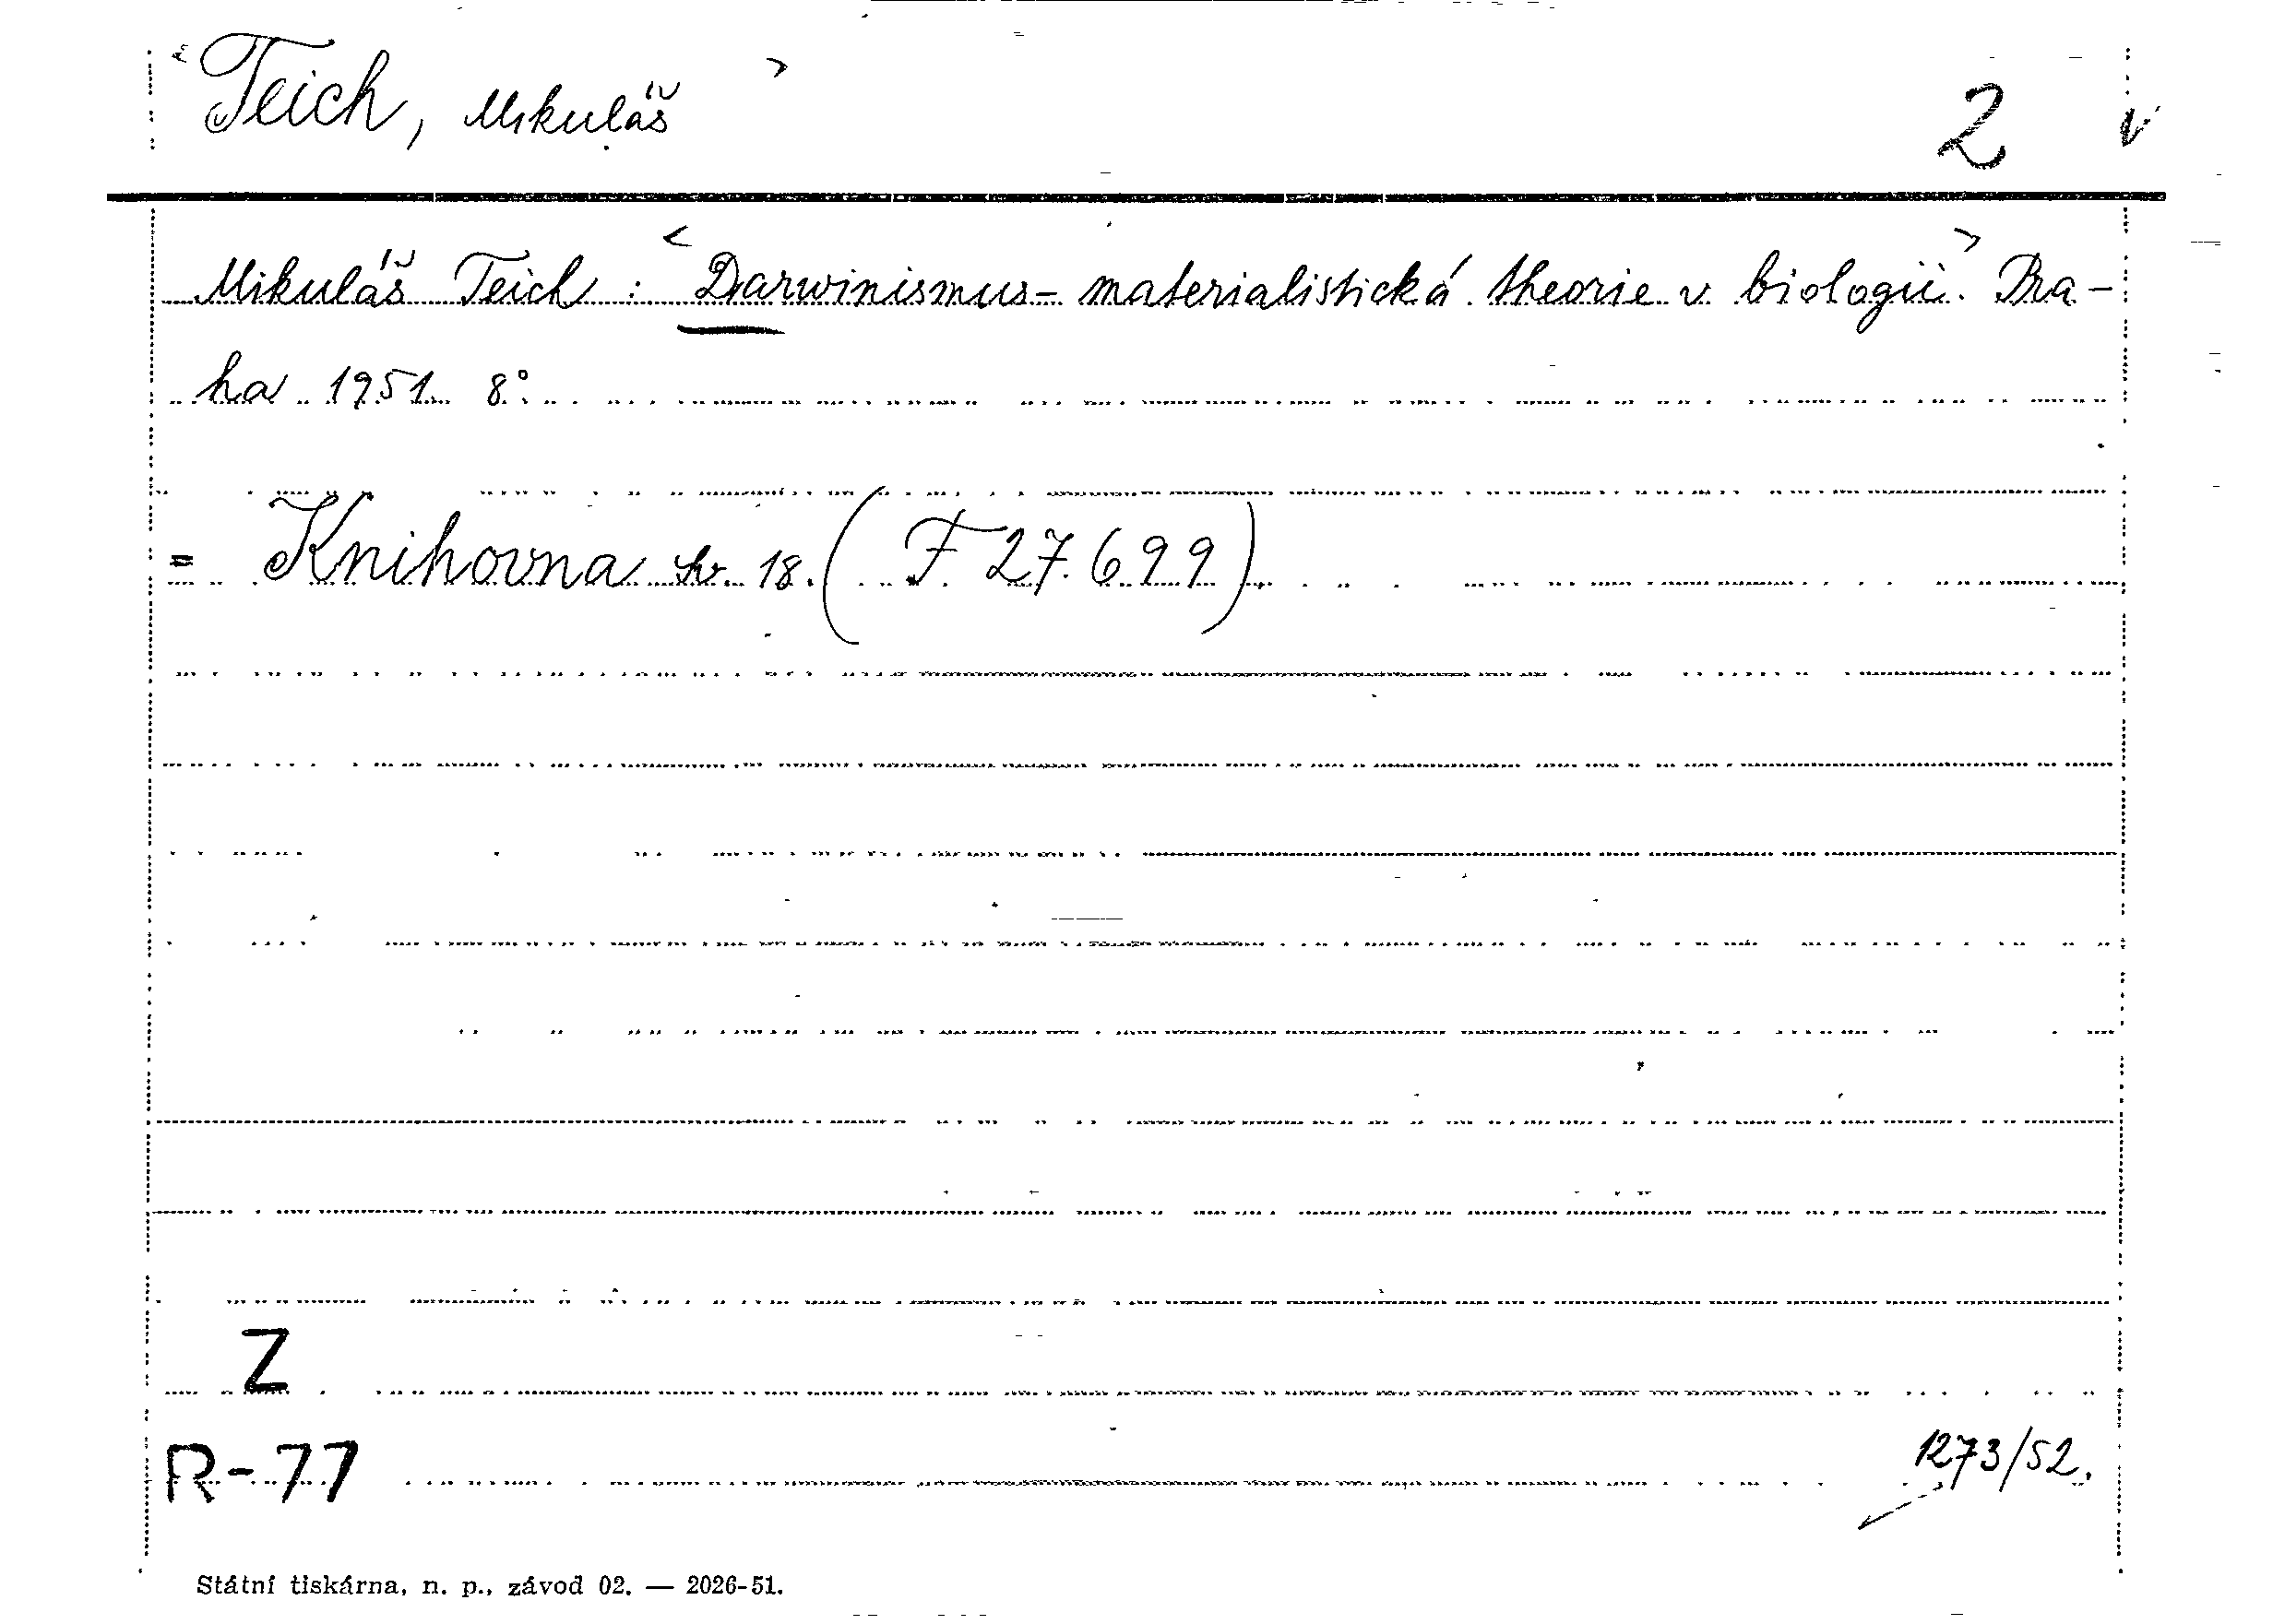 <Teich, Mikuláš> 2 v
Mikuláš Teich : <Darwinismus - materialistická theorie v biologii.> Pra-
ha 1951. 8°.
= Knihovna sv. 18. (F 27.699)
Z
R-77 1273/52.
Státní tiskárna, n. p., závod 02. — 2026-51.